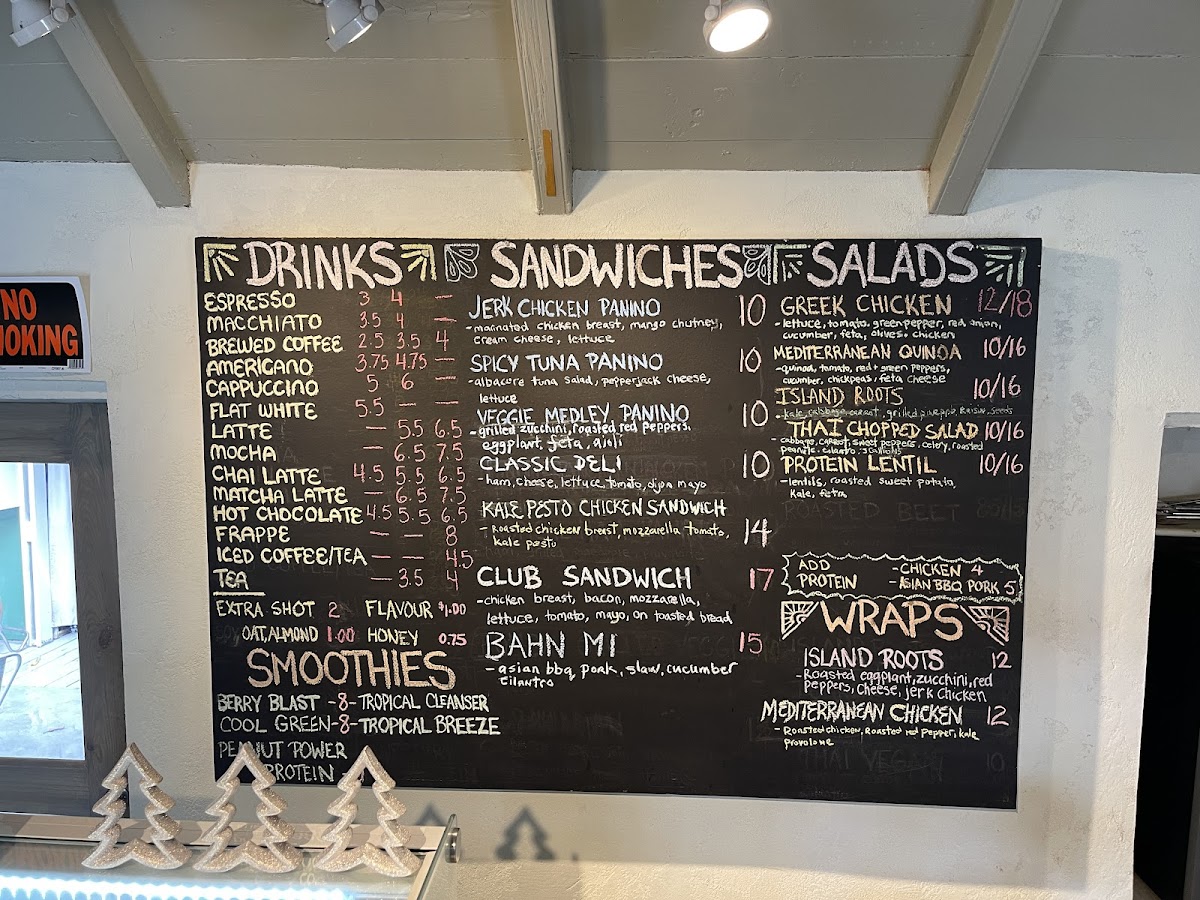 NO
MOKING
DRINKS
ESPRESSO 3 4 —
MACCHIATO 3.5 4 —
BREWED COFFEE 2.5 3.5 4
AMERICANO 3.75 4.75 —
CAPPUCCINO 5 6 —
FLAT WHITE 5.5 — —
LATTE — 5.5 6.5
MOCHA — 6.5 7.5
CHAI LATTE 4.5 5.5 6.5
MATCHA LATTE — 6.5 7.5
HOT CHOCOLATE 4.5 5.5 6.5
FRAPPE — — 8
ICED COFFEE/TEA — — 4.5
TEA — 3.5 4
EXTRA SHOT 2 FLAVOUR $1.00
OAT, ALMOND 1.00 HONEY 0.75
SMOOTHIES
BERRY BLAST -8- TROPICAL CLEANSER
COOL GREEN -8- TROPICAL BREEZE
PEANUT POWER
PROTEIN
SANDWICHES
JERK CHICKEN PANINO 10
- marinated chicken breast, mango chutney,
cream cheese, lettuce
SPICY TUNA PANINO 10
- albacore tuna salad, pepperjack cheese,
lettuce
VEGGIE MEDLEY PANINO 10
- grilled zucchini, roasted red peppers,
eggplant, feta, aioli
CLASSIC DELI 10
- ham, cheese, lettuce, tomato, dijon mayo
KALE PESTO CHICKEN SANDWICH
- Roasted chicken breast, mozzarella tomato, 14
kale pesto
CLUB SANDWICH 17
- chicken breast, bacon, mozzarella,
lettuce, tomato, mayo, on toasted bread
BAHN MI 15
- asian bbq pork, slaw, cucumber
cilantro
SALADS
GREEK CHICKEN 12/18
- lettuce, tomato, green pepper, red onion,
cucumber, feta, olives, chicken
MEDITERRANEAN QUINOA 10/16
- quinoa, tomato, red + green peppers,
cucumber, chickpeas, feta cheese
ISLAND ROOTS 10/16
- kale, cabbage, carrot, grilled pineapple, Raisin, Seeds
THAI CHOPPED SALAD 10/16
- cabbage, carrot, sweet peppers, celery, roasted
peanuts, cilantro, scallions
PROTEIN LENTIL 10/16
- lentils, roasted sweet potato,
kale, feta
ROASTED BEET
ADD - CHICKEN 4
PROTEIN - ASIAN BBQ PORK 5
WRAPS
ISLAND ROOTS 12
- Roasted eggplant, zucchini, red
peppers, cheese, jerk chicken
MEDITERRANEAN CHICKEN 12
- Roasted chicken, Roasted red pepper, kale
provolone
THAI VEGAN 10